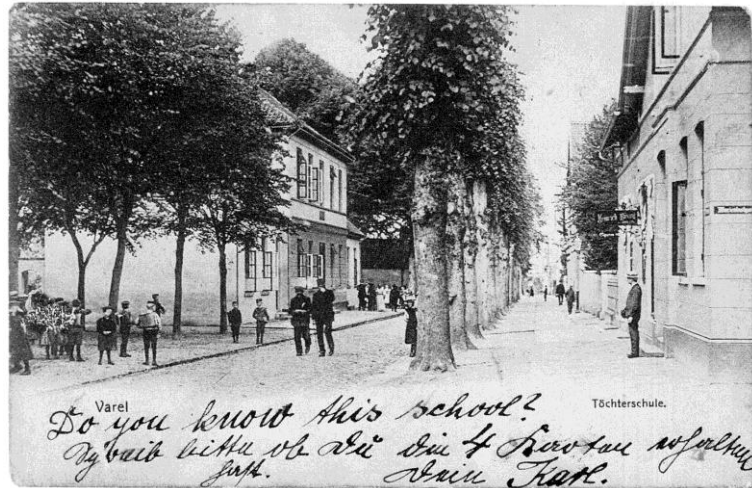 Varel
Töchterschule.
Do you know this school?
Schreib bitte ob Du die 4 Karten erhalten
hast. Dein Karl.